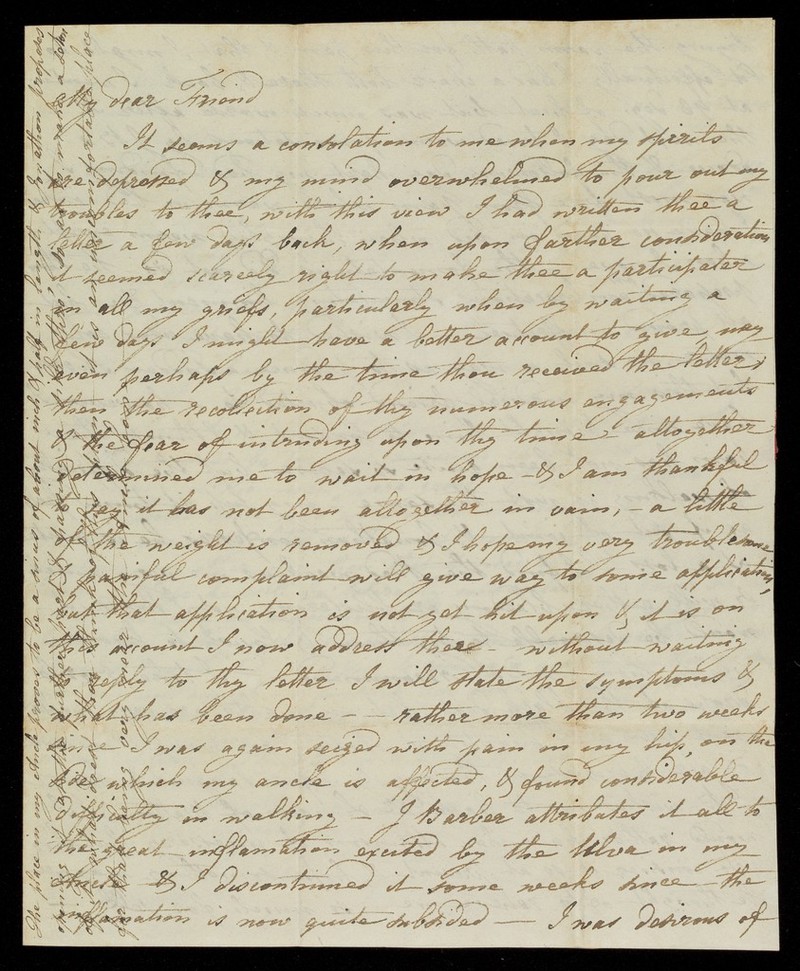 My dear Friend
It seems a consolation to me when my spirits
are depressed & my mind overwhelmed to pour out my
troubles to thee, with this view I had written thee a
letter a few days back, when upon farther consideration
it seemed scarcely right to make thee a participater
in all my griefs, particularly when by waiting a
few days I might have a better account to give, nay
even perhaps by the time thou received the letter,
then the recollection of thy numerous engagements
& the fear of intruding upon thy time altogether
determined me to wait in hope - & I am thankful
to say it has not been altogether in vain, - a little
of the weight is removed & I hope my very troublesome
& painful complaint will give way to some application,
but that application is not yet hit upon & it is on
this account I now address thee - without waiting
a reply to thy letter I will state the symptoms &
what has been done - - rather more than two weeks
since I was again seized with pain in my hip, on the
side which my ancle is affected, & found considerable
difficulty in walking - J Barber attributes it all to
the great inflamation excited by the Ulva in my
ancle & I discontinued it some weeks since the
inflamation is now quite subsided - I was desirous of
The place in my Ancle proves to be a sinus of about inch & half in length, & Jonathan proposes
opening it